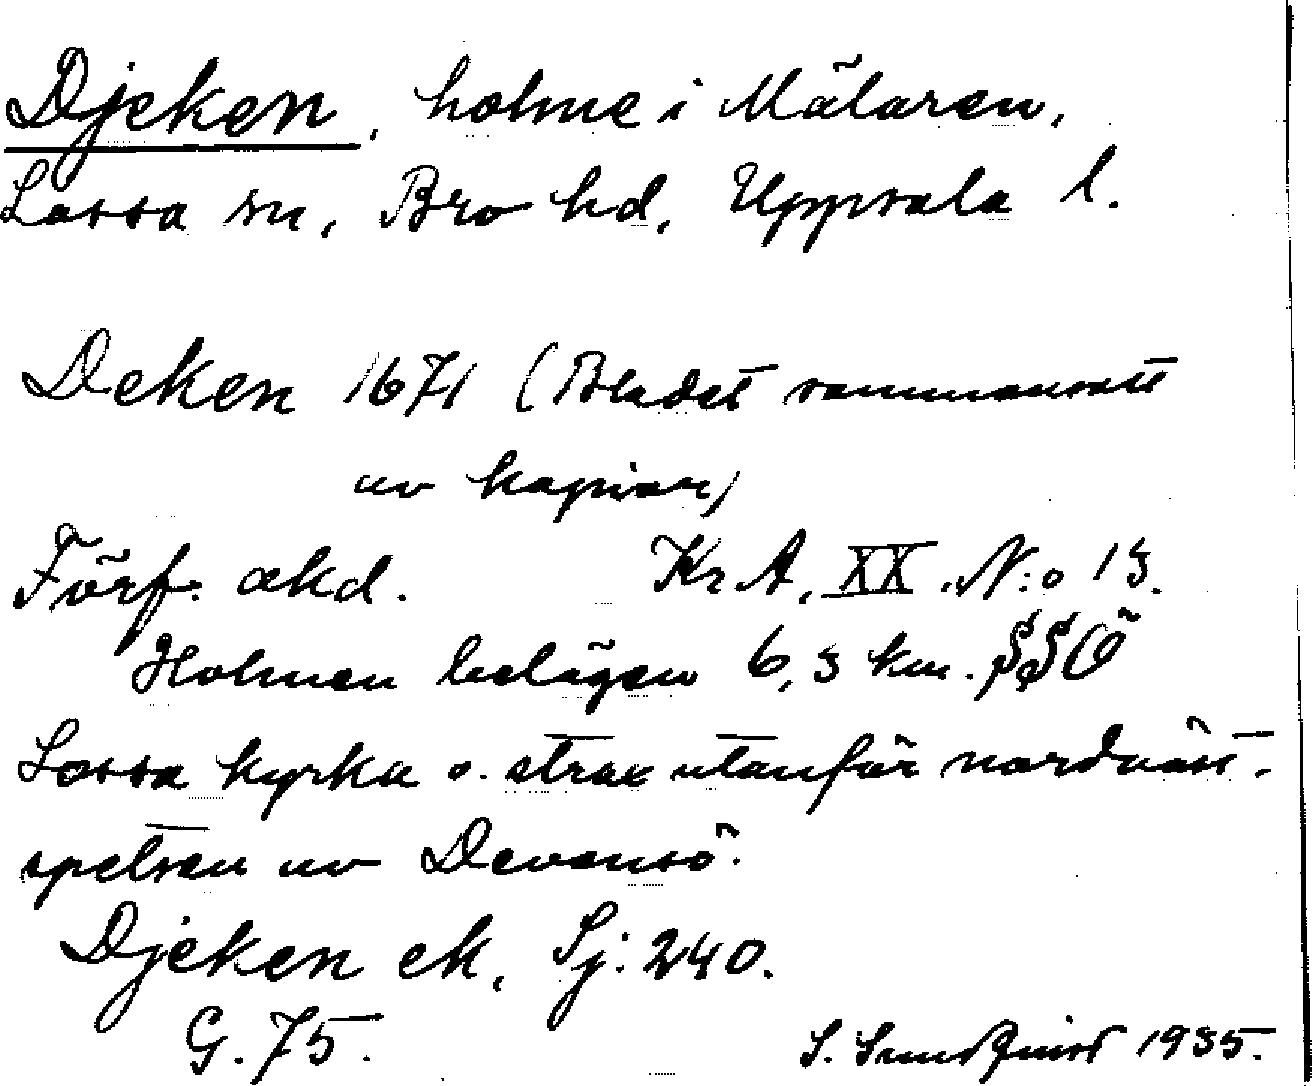 Djeken, holme i Mälaren,
Lossa sn, Bro hd, Uppsala l.
Deken 1671 (Bladet sammansatt
av kopior)
Förf. okd. Kr A, XX. N:o 13.
Holmen belägen 6,3 km. SSÖ
Lossa kyrka o. strax utanför nordväst-
spetsen av Dävensö.
Djeken ek, Sj: 240.
G. 75.
S. Sundquist 1935.